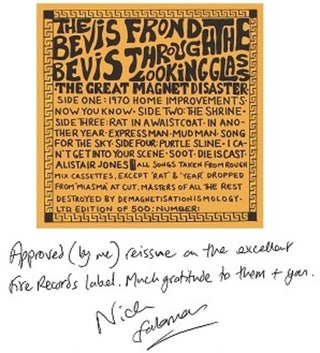 THE BEVIS FROND
BEVIS THROUGH THE
LOOKING GLASS
THE GREAT MAGNET DISASTER
SIDE ONE: 1970 HOME IMPROVEMENTS·
NOW YOU KNOW· SIDE TWO: THE SHRINE·
SIDE THREE: RAT IN A WAISTCOAT· IN ANO-
THER YEAR· EXPRESS MAN· MUD MAN· SONG
FOR THE SKY· SIDE FOUR: PURTLE SLINE· I CA-
N'T GET INTO YOUR SCENE· SOOT· DIE IS CAST·
ALISTAIR JONES ALL SONGS TAKEN FROM ROUGH
MIX CASSETTES, EXCEPT 'RAT' & 'YEAR' DROPPED
FROM 'MIASMA' AT CUT. MASTERS OF ALL THE REST
DESTROYED BY DEMAGNETISATIONISMOLOGY·
LTD EDITION OF 500: NUMBER:
Approved (by me) reissue on the excellent
Fire Records label. Much gratitude to them + you.
Nick
Saloman